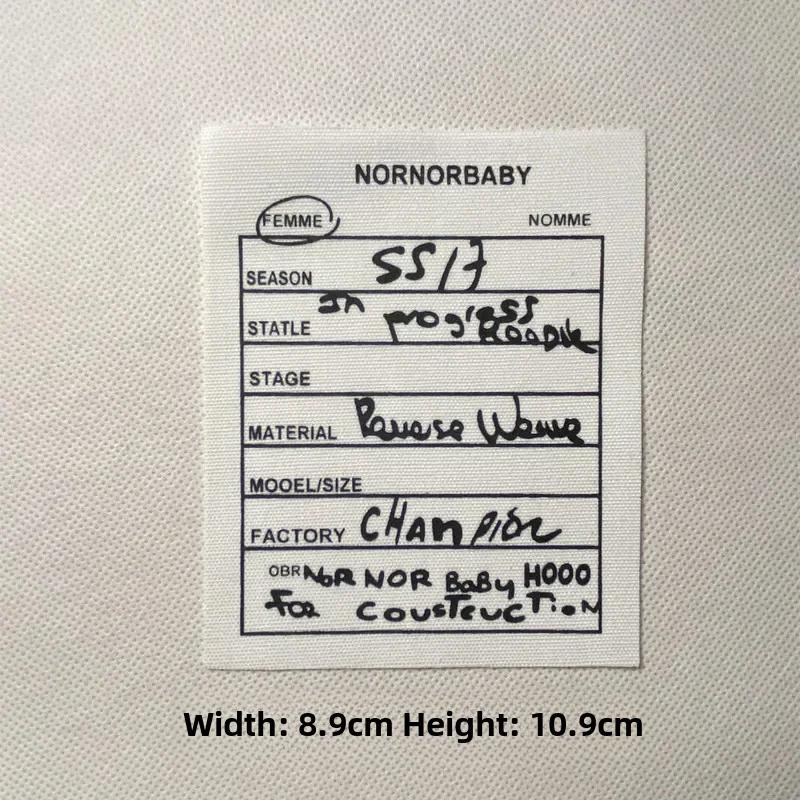 NORNORBABY
FEMME NOMME
SEASON SS17
STATLE In progress
HOODIE
STAGE
MATERIAL Reverse Weave
MOOEL/SIZE
FACTORY CHAMPION
OBR NOR NOR BaBy HOOO
FOR COUSTRUCTION
Width: 8.9cm Height: 10.9cm